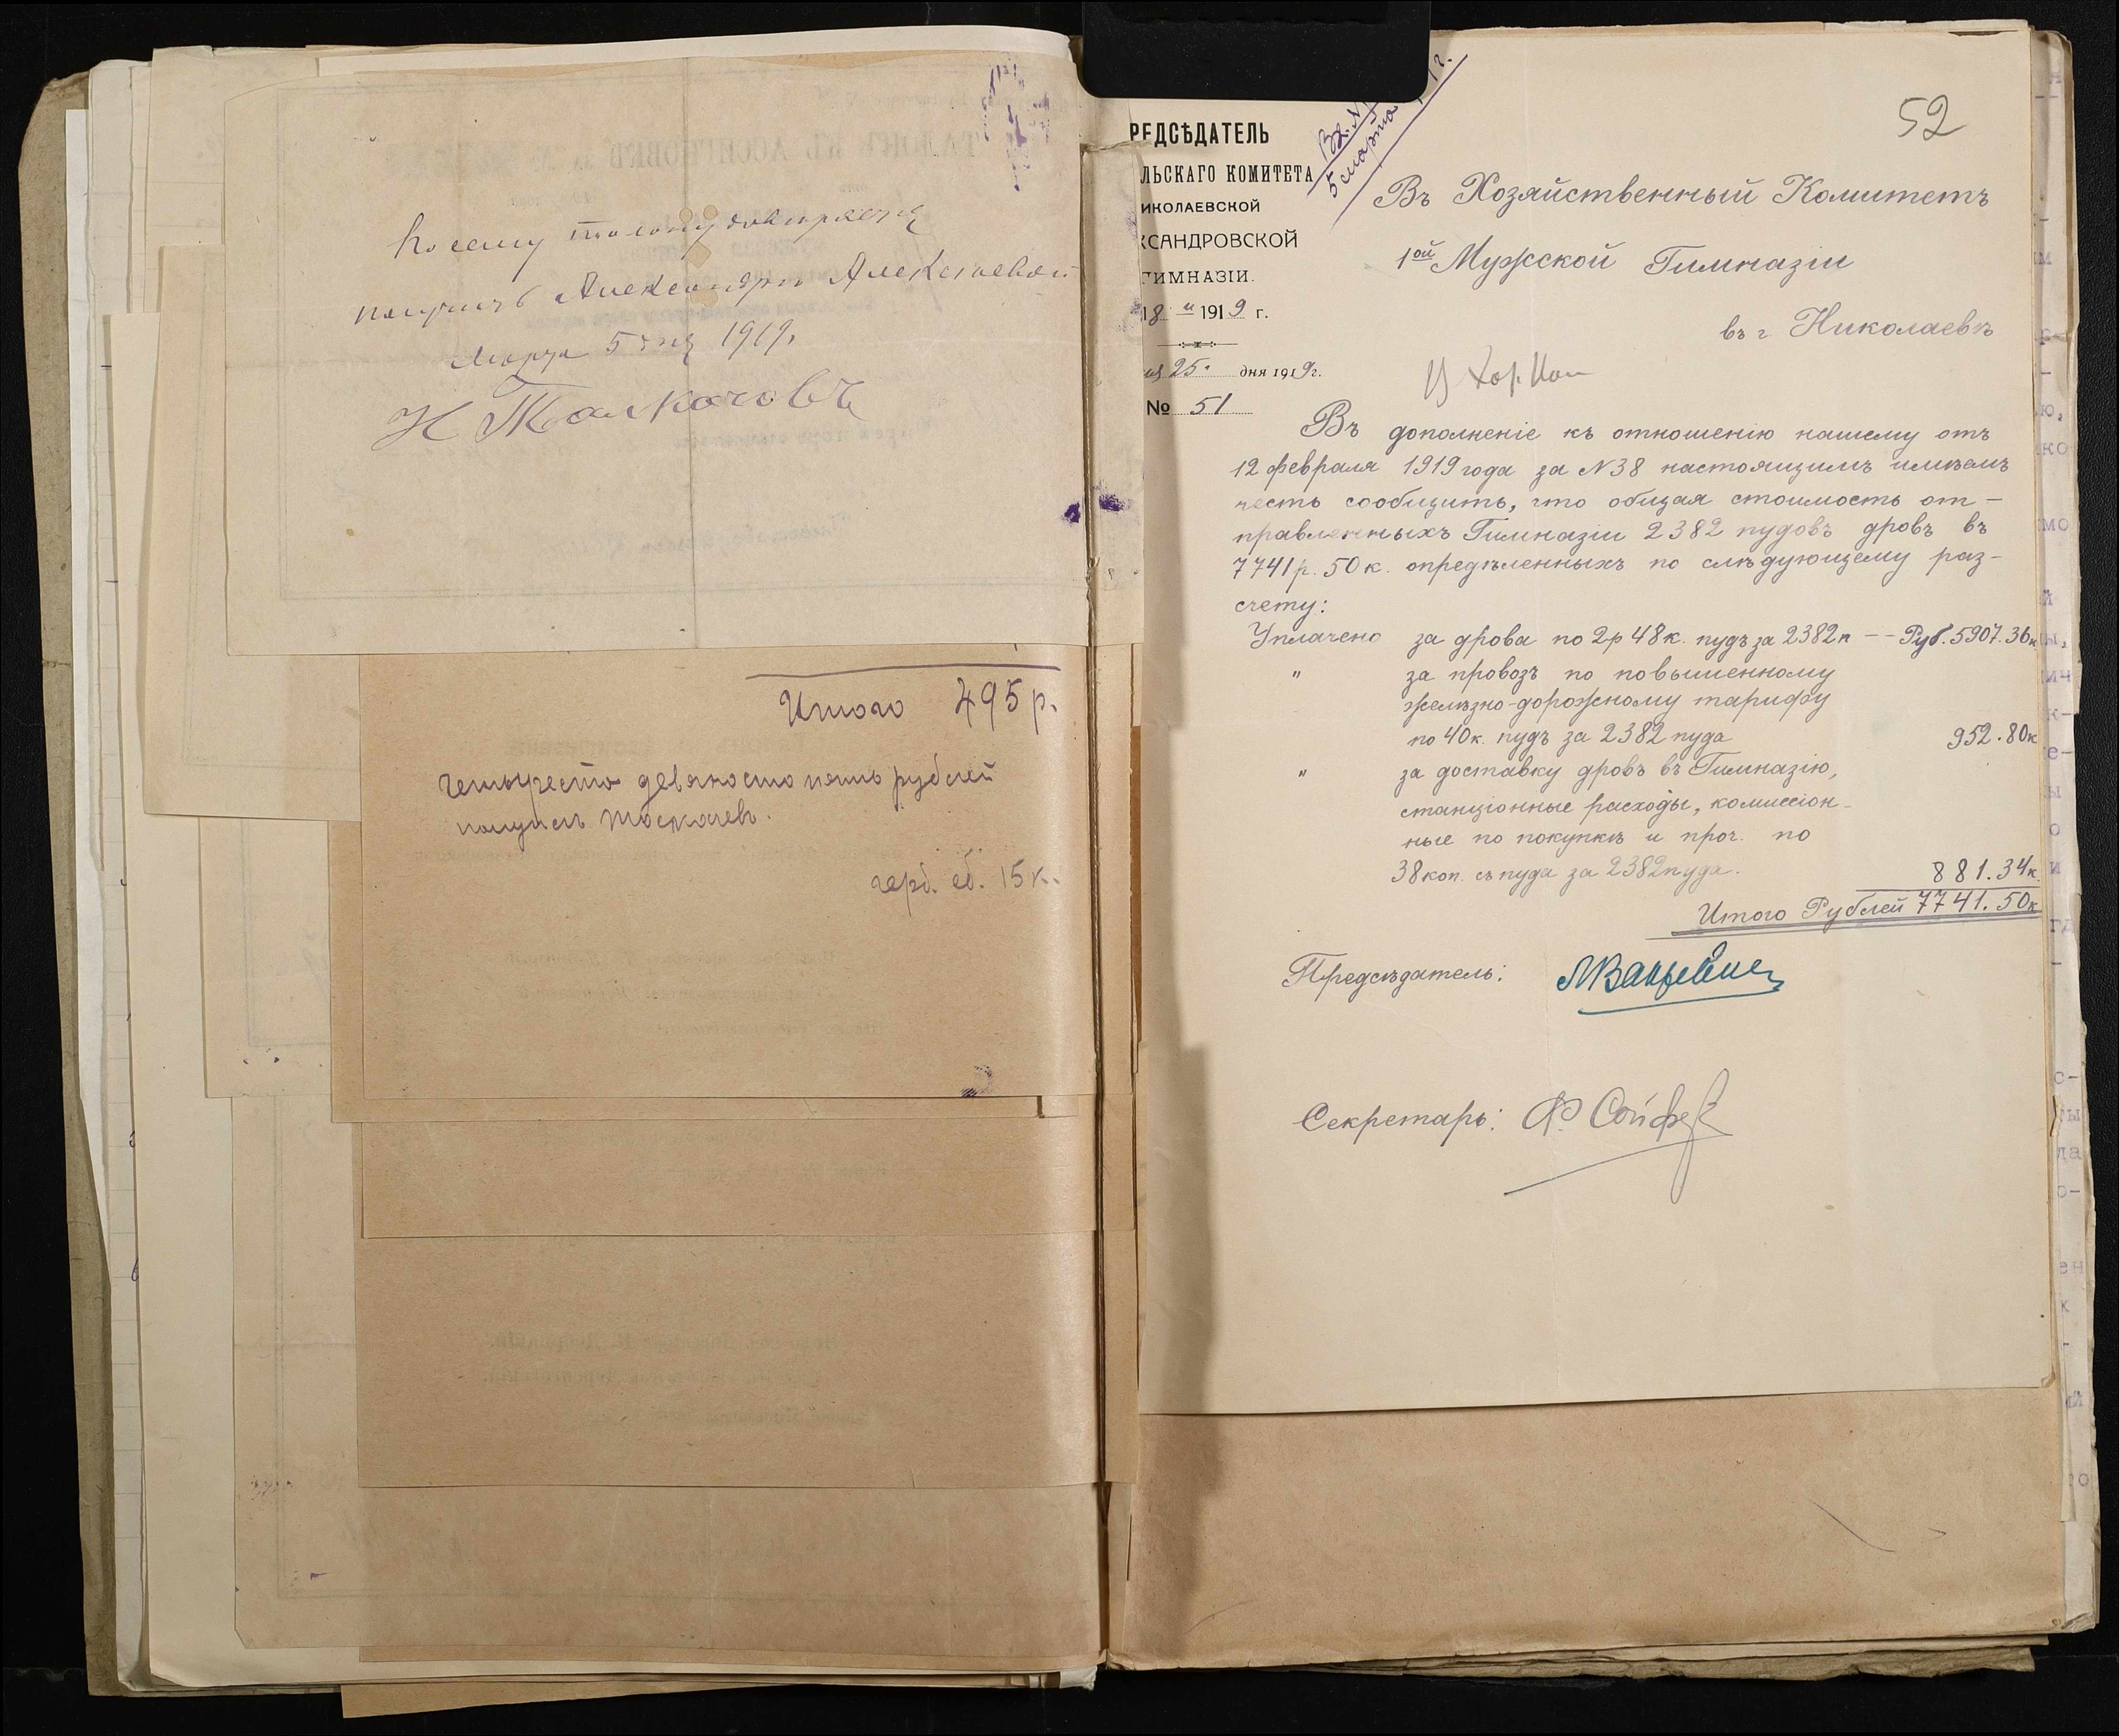 По сему талону доверяется
получить Александръ Алексеевой
Марта 5 дня 1919.
Н Толкачовъ
Итого 495 р.
четыреста девяносто пять рублей
получилъ Толкачевъ.
герб. сб. 15 к.
52
Вх. №
5 марта
РЕДСѢДАТЕЛЬ
ЛЬСКАГО КОМИТЕТА
ИКОЛАЕВСКОЙ
КСАНДРОВСКОЙ
ГИМНАЗІИ.
18 1919 г.
25 дня 1919 г.
№ 51
Въ Хозяйственный Комитетъ
1ой Мужской Гимназіи
въ г Николаевъ
Въ дополненіе къ отношенію нашему отъ
12 февраля 1919 года за N 38 настоящимъ имѣемъ
честь сообщить, что общая стоимость от-
правленныхъ Гимназіи 2382 пудовъ дровъ въ
7741 р. 50 к. опредѣленныхъ по слѣдующему раз-
счету:
Уплачено за дрова по 2р 48к. пудъ за 2382 п -- Руб. 5907.36к
" за провозъ по повышенному
желѣзно-дорожному тарифу
по 40 к. пудъ за 2382 пуда 952.80к
" за доставку дровъ въ Гимназію,
станціонные расходы, комиссіон-
ные по покупкѣ и проч. по
38 коп. съ пуда за 2382 пуда. 881.34к.
Итого Рублей 7741.50к
Предсѣдатель:
Секретарь: